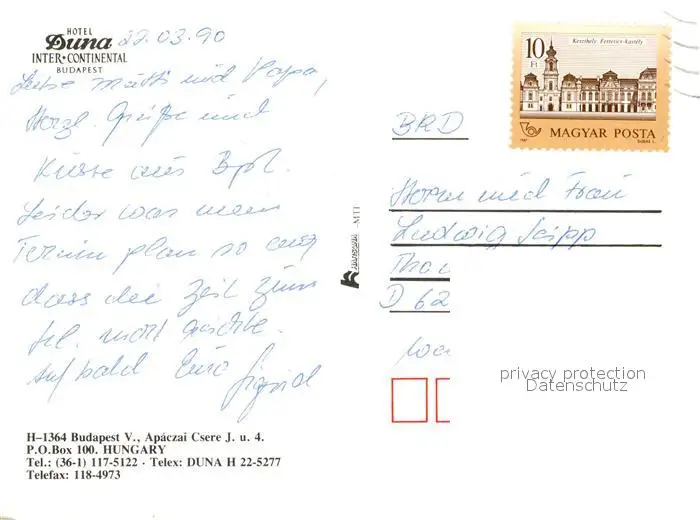 HOTEL
Duna 22.03.90
INTER·CONTINENTAL
BUDAPEST
Liebe Mutti und Papa,
Herzl. Grüße und
Küsse aus Bpst.
Leider war mein
Terminplan so eng
dass die Zeit zum
Tel. nicht reichte.
Auf bald Eure Sigrid
H–1364 Budapest V., Apáczai Csere J. u. 4.
P.O.Box 100. HUNGARY
Tel.: (36-1) 117-5122 · Telex: DUNA H 22-5277
Telefax: 118-4973
MTI
Keszthely. Festetics-kastély
10
Ft
MAGYAR POSTA
BRD
Herrn und Frau
Ludwig
D 62
privacy protection
Datenschutz